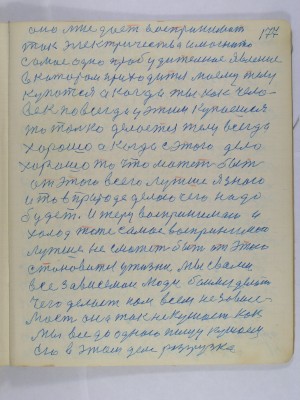 оно мне дает воспринимат 177
ток электричества и магнита
самое одно пробудительное явление
в котором приходится моему телу
купатся а когда ты как чело-
век повсегда у этим купаешся
то только делается телу всегда
хорошо а когда с этого дела
хорошо то что может быть
от этого всего лутше ясного
и то в природе делать чего надо
будет. И жеру воспринимаю и
холод тоже самое воспринимаю
лутше не сможет быть от этого
становится у жизни. Мы с вами
все зависемои люди. боимся делать
чего делает нам всем независе-
мость она так не кушает как
мы все до одного пищу кушаем
Ето в этом деле разгрузка